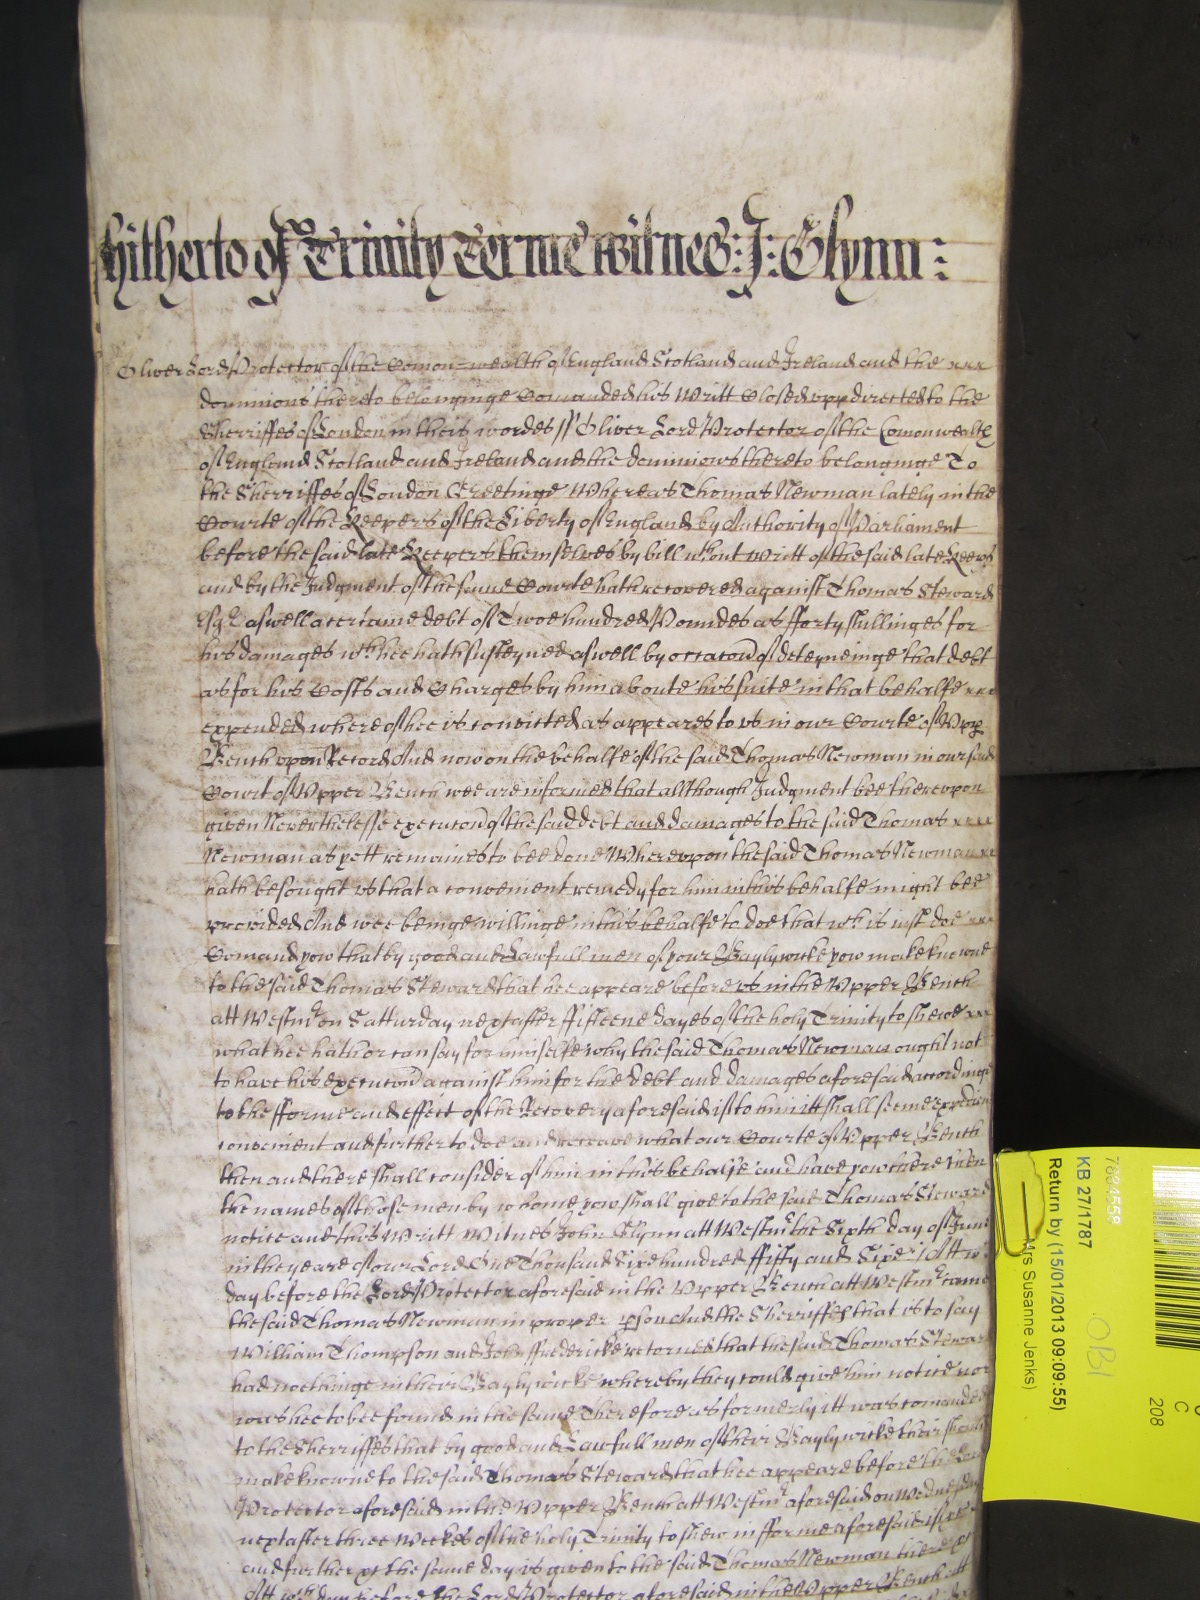 hitherto of Trinity Terme witnes: J: Glynn:
Oliver Lord Protector of the Comon=wealth of England Scotland and Ireland and the xxx
dominions thereto belonginge Comanded his Writt Closed upp directed to the
Sherriffes of London in theis wordes // Oliver Lord Protector of the Comonwealth
of England Scotland and Ireland and the dominions thereto belonginge To
the Sherriffes of London Greetinge Whereas Thomas Newman lately in the
Courte of the Keepers of the Liberty of England by Authority of Parliament
before the said late Keepers themselves by bill wthout writt of the said late Keeps
and by the Judgment of the same Courte hath recovered against Thomas Steward
Esqr aswell a certaine debt of Twoe hundred Poundes as fforty shillinges for
his damages wch hee hath susteyned aswell by occacon of deteyneinge that debt
as for his Costs and Charges by him aboute his suite in that behalfe xxx
expended whereof hee is convicted as appeares to us in our Courte of Upp
Bench upon Record And now on the behalfe of the said Thomas Newman in our said
Court of Upper Bench wee are informed that allthough Judgment bee thereupon
given Neverthelesse execucon of the said debt and damages to the said Thomas xxxx
Newman as yett remaines to bee done Whereupon the said Thomas Newman xx
hath besought us that a convenient remedy for him in this behalfe might bee
provided And wee beinge willinge in this behalfe to doe that wch is just doe xxx
Comand yow that by good and Lawfull men of your Baylywicke yow make knowne
to the said Thomas Steward that hee appeare before us in the Upper Bench
att Westmr on Satturday next after ffifteene dayes of the holy Trinity to shewe xxx
what hee hath or can say for himselfe why the said Thomas Newman ought not
to have his execucon against him for the debt and damages aforesaid accordinge
to the fforme and effect of the Recovery aforesaid if to him itt shall seeme expedient
convenient and further to doe and receave what our Courte of Upper Bench
then and there shall consider of him in this behalfe and have yow there then
the names of those men by whome yow shall give to the said Thomas Steward
notice and this Writt Witnes John Glynn att Westmr the Sixth day of June
in the yeare of our Lord One Thousand Sixe hundred ffifty and Sixe / Att wch
day before the Lord Protector aforesaid in the Upper Bench att Westmr came
the said Thomas Newman in proper pson And the Sherriffes that is to say
William Thompson and John ffredericke retorned that the said Thomas Steward
had nothinge in their Baylywicke whereby they could give him notice nor
was hee to bee found in the same Therefore as formerly itt was comanded
to the Sherriffes that by good and Lawfull men of their Baylywicke their should
make knowne to the said Thomas Steward that hee appeare before the Lord
Protector aforesaid in the Upper Bench att Westmr aforesaid on Wednesday
next after three Weekes of the holy Trinity to shew in fforme aforesaid if
and further the same day is given to the said Thomas Newman there
Att wch day before the Lord Protector aforesaid in the Upper Bench att
7884558
KB 27/1787
Return by (15/01/2013 09:09:55)
Mrs Susanne Jenks)
OBI
C
208